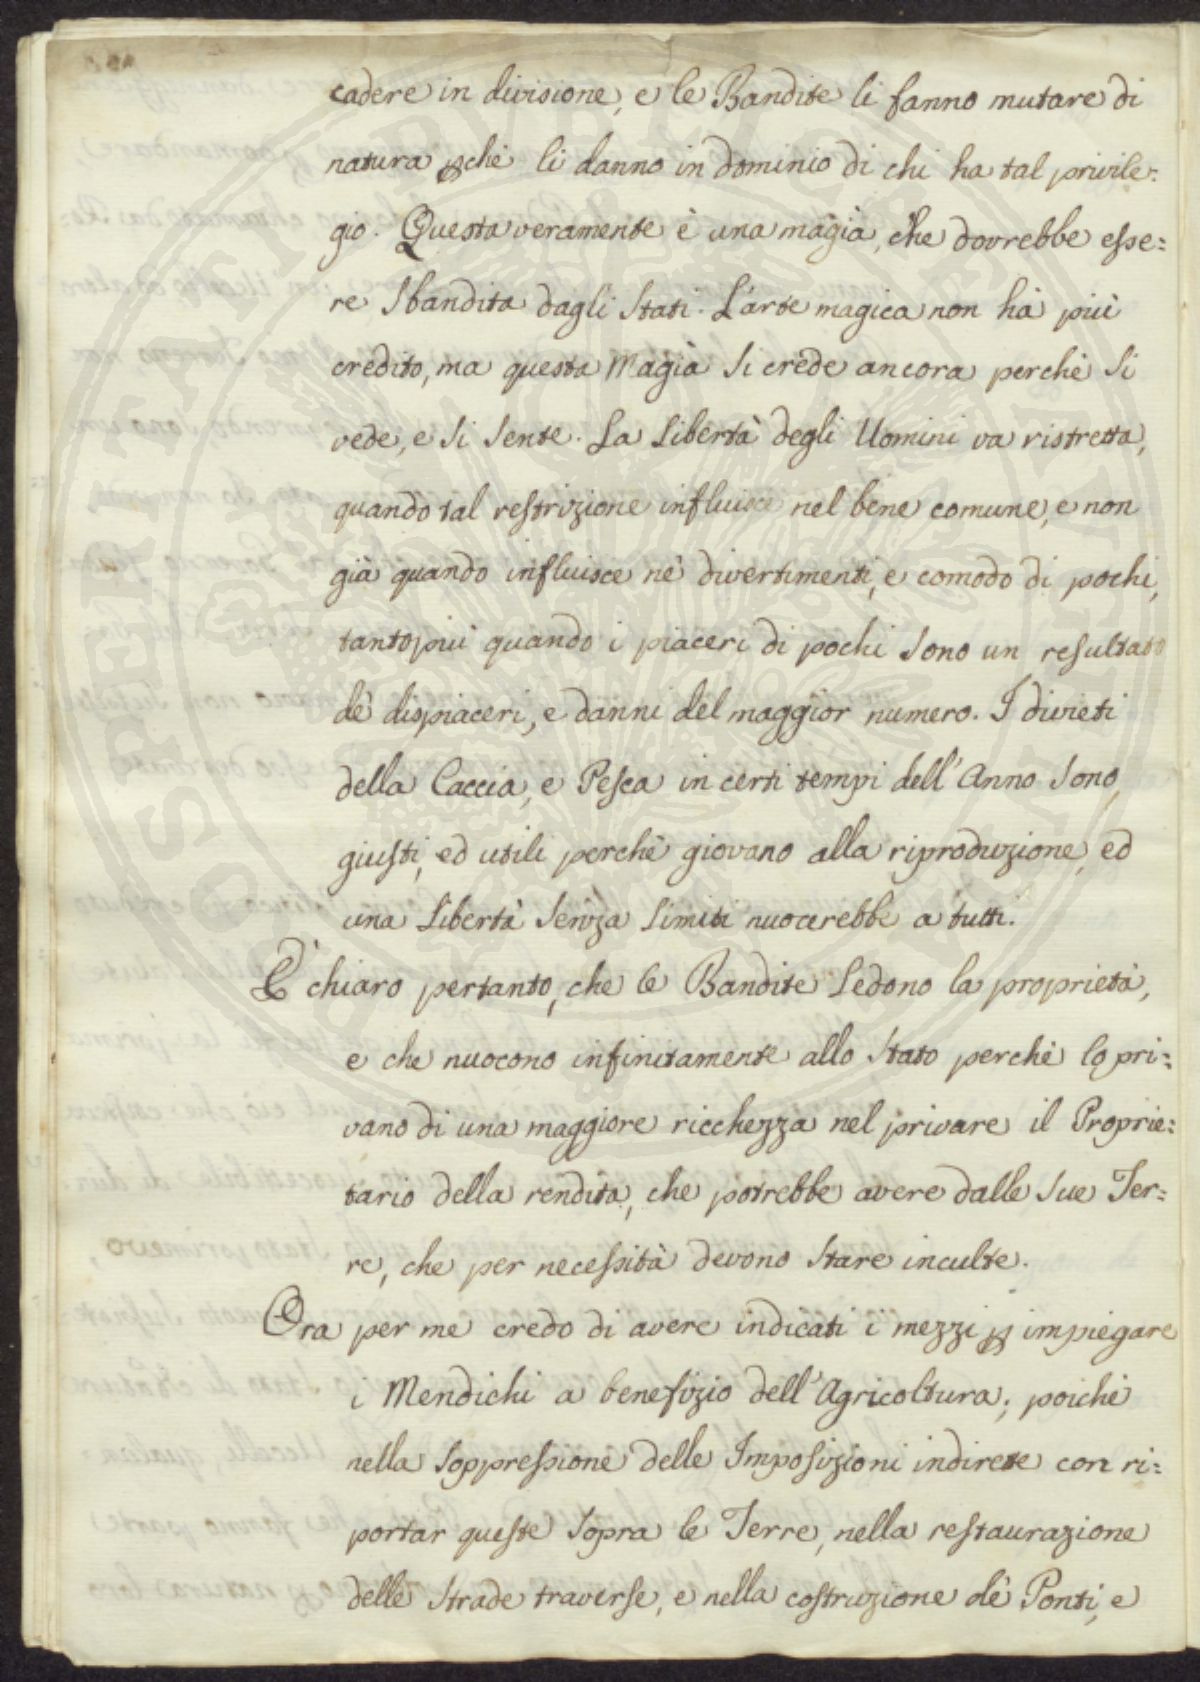 cadere in divisione, e le Bandite li fanno mutare di
natura pchè li danno in dominio di chi ha tal privile:
gio. Questa veramente è una magìa, che dovrebbe esse:
re Sbandita dagli Stati. L'arte magica non hà più
credito, ma questa Magìa si crede ancora perchè Si
vede, e Si Sente. La Libertà degli Uomini va ristretta,
quando tal restrizione influisce nel bene comune, e non
già quando influisce nè divertimenti, e comodo di pochi,
tantopiù quando i piaceri di pochi Sono un resultato
dè dispiaceri, e danni del maggior numero. I divieti
della Caccia, e Pesca in certi tempi dell'Anno Sono,
giusti, ed utili perchè giovano alla riproduzione, ed
una Libertà Senza Limiti nuocerebbe a tutti.
È chiaro pertanto, che le Bandite Ledono la proprietà,
e che nuocono infinitamente allo Stato perchè lo pri:
vano di una maggiore ricchezza nel privare il Proprie:
tario della rendita, che potrebbe avere dalle Sue Ter:
re, che per necessità devono Stare inculte.
Ora per me credo di avere indicati i mezzi p impiegare
i Mendichi a benefizio dell'Agricoltura; poichè
nella Soppressione delle Imposizioni indirette con ri:
portar queste Sopra le Terre, nella restaurazione
delle Strade traverse, e nella costruzione dè Ponti, e
PROSPERITATI PVBLICAE AVGENDAE